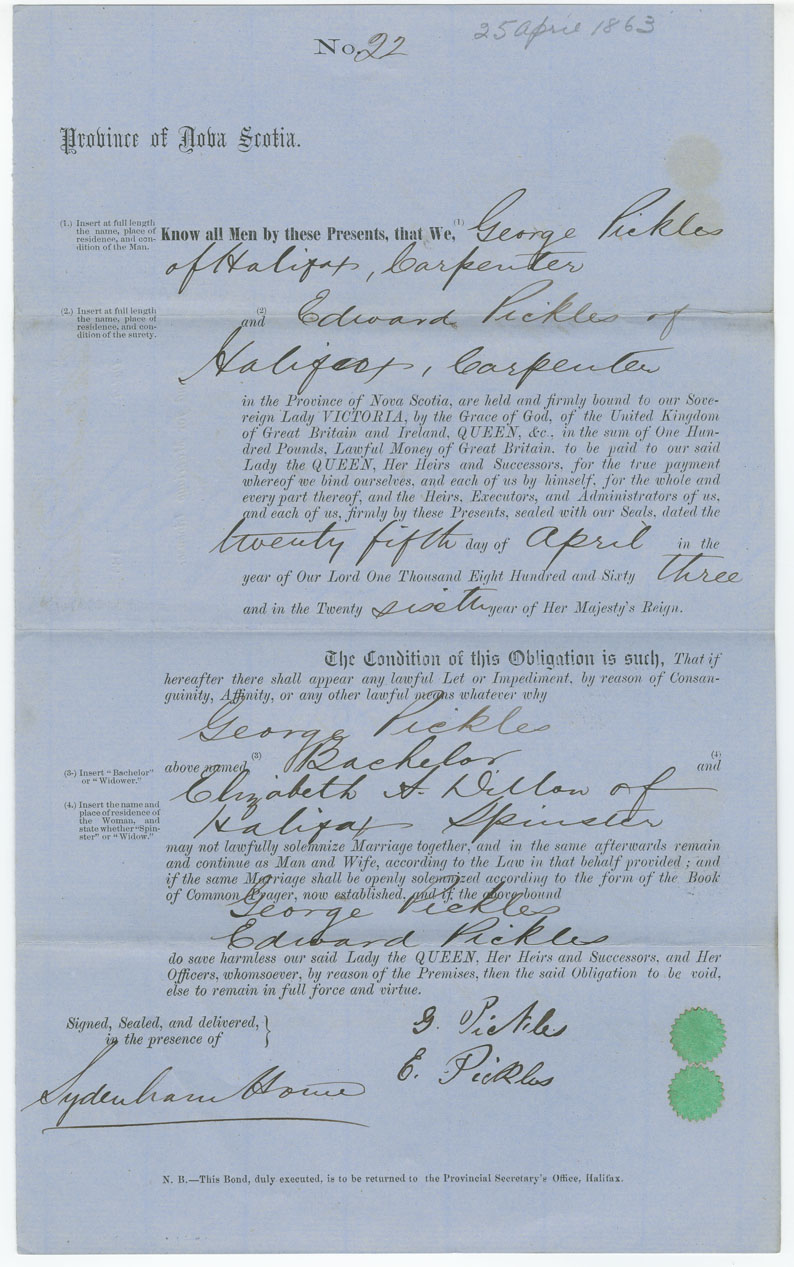 25 April 1863
No. 22
Province of Nova Scotia.
(1.) Insert at full length
the name, place of
residence, and con-
dition of the Man.
Know all Men by these Presents, that We, (1) George Pickles
of Halifax, Carpenter
(2.) Insert at full length
the name, place of
residence, and con-
dition of the surety.
and (2) Edward Pickles of
Halifax, Carpenter
in the Province of Nova Scotia, are held and firmly bound to our Sove-
reign Lady VICTORIA, by the Grace of God, of the United Kingdom
of Great Britain and Ireland, QUEEN, &c., in the sum of One Hun-
dred Pounds, Lawful Money of Great Britain, to be paid to our said
Lady the QUEEN, Her Heirs and Successors, for the true payment
whereof we bind ourselves, and each of us by himself, for the whole and
every part thereof, and the Heirs, Executors, and Administrators of us,
and each of us, firmly by these Presents, sealed with our Seals, dated the
twenty fifth day of April in the
year of Our Lord One Thousand Eight Hundred and Sixty three
and in the Twenty sixth year of Her Majesty's Reign.
The Condition of this Obligation is such, That if
hereafter there shall appear any lawful Let or Impediment, by reason of Consan-
guinity, Affinity, or any other lawful means whatever why
George Pickles
(3.) Insert "Bachelor"
or "Widower."
above named (3) Bachelor (4) and
(4.) Insert the name and
place of residence of
the Woman, and
state whether "Spin-
ster" or "Widow."
Elizabeth A. Dillon of
Halifax Spinster
may not lawfully solemnize Marriage together, and in the same afterwards remain
and continue as Man and Wife, according to the Law in that behalf provided; and
if the same Marriage shall be openly solemnized according to the form of the Book
of Common Prayer, now established, and if the above bound
George Pickles
Edward Pickles
do save harmless our said Lady the QUEEN, Her Heirs and Successors, and Her
Officers, whomsoever, by reason of the Premises, then the said Obligation to be void,
else to remain in full force and virtue.
Signed, Sealed, and delivered,
in the presence of
G. Pickles
E. Pickles
Sydenham Howe
N. B.—This Bond, duly executed, is to be returned to the Provincial Secretary's Office, Halifax.